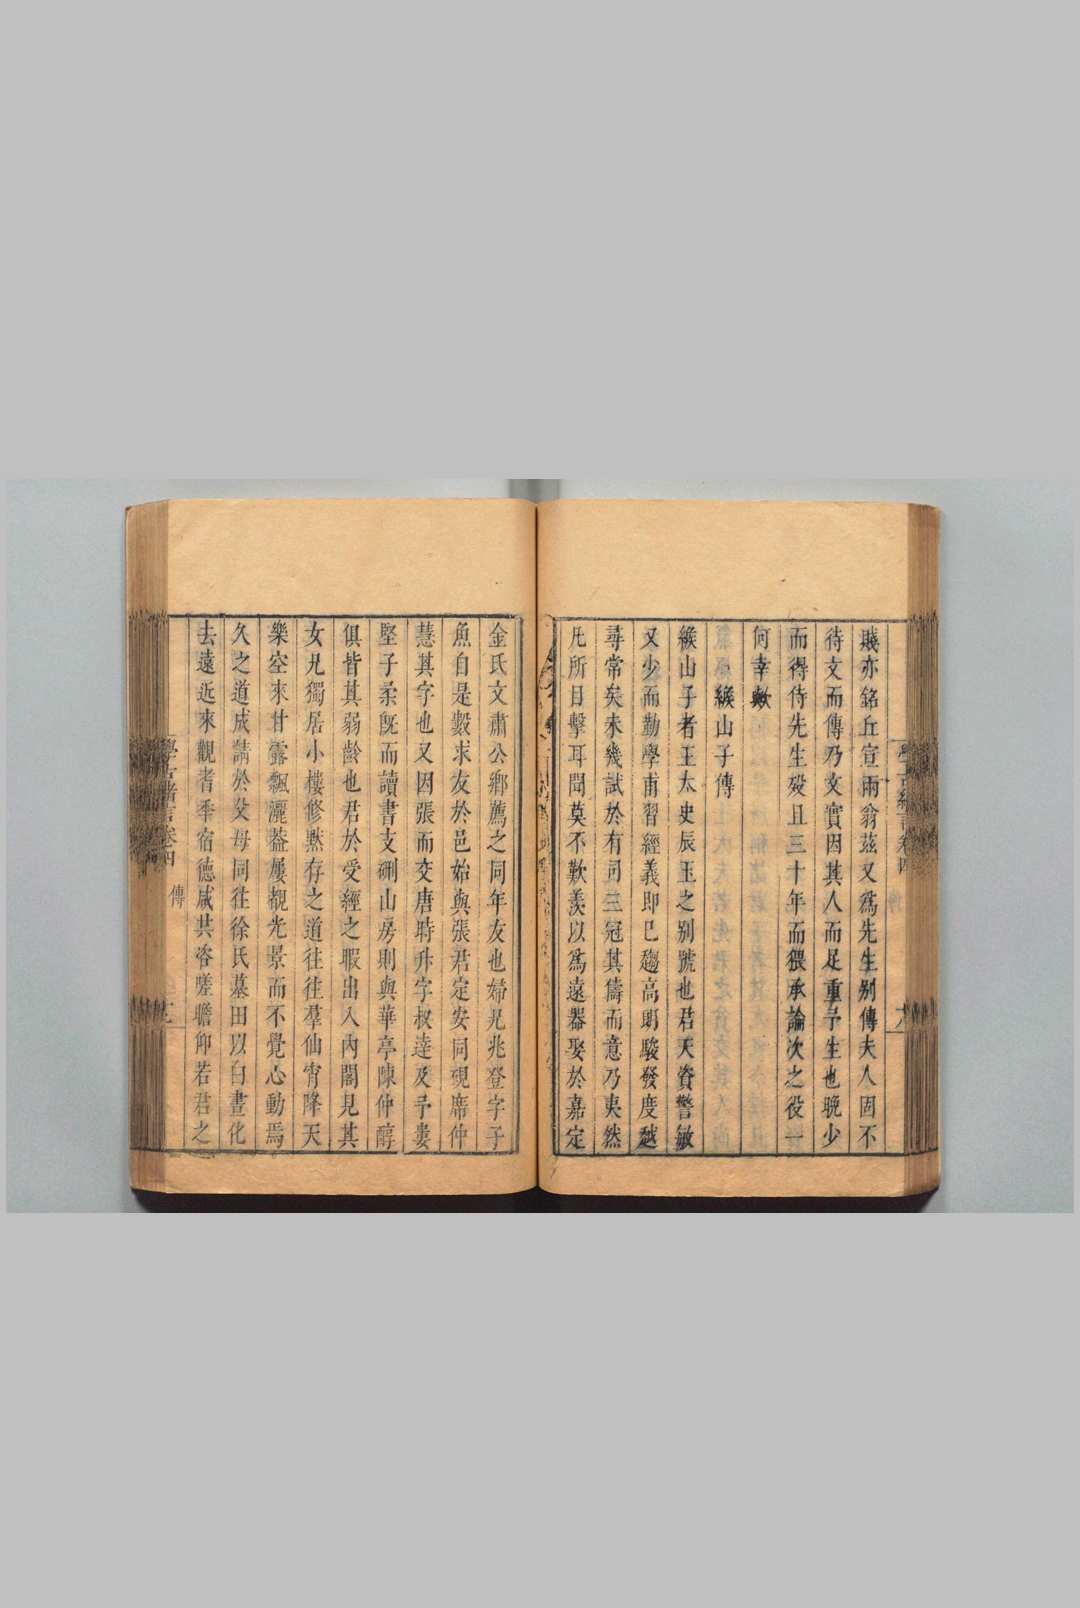 賤亦銘丘宣兩翁茲又爲先生别傳夫人固不
待文而傳乃文實因其人而足重予生也晚少
而得侍先生歿且三十年而猥承論次之役一
何幸歟
緱山子傳
緱山子者王太史辰玉之别號也君天資警敏
又少而勤學甫習經義即已趨高朗駿發度越
尋常矣未幾試於有司三冠其儔而意乃夷然
凡所目擊耳聞莫不歎羡以爲遠器娶於嘉定
金氏文肅公鄉薦之同年友也婦兄兆登字子
魚自是數求友於邑始與張君定安同硯席仲
慧其字也又因張而交唐時升字叔達及予婁
堅子柔旣而讀書支硎山房則與華亭陳仲醇
俱皆其弱齡也君於受經之暇出入內閣見其
女兄獨居小樓修默存之道往往羣仙宵降天
樂空來甘露飄灑葢屢覩光景而不覺心動焉
久之道成請於父母同往徐氏墓田以白晝化
去遠近來觀者季宿德咸共咨嗟瞻仰若君之
學古緒言卷四
傳